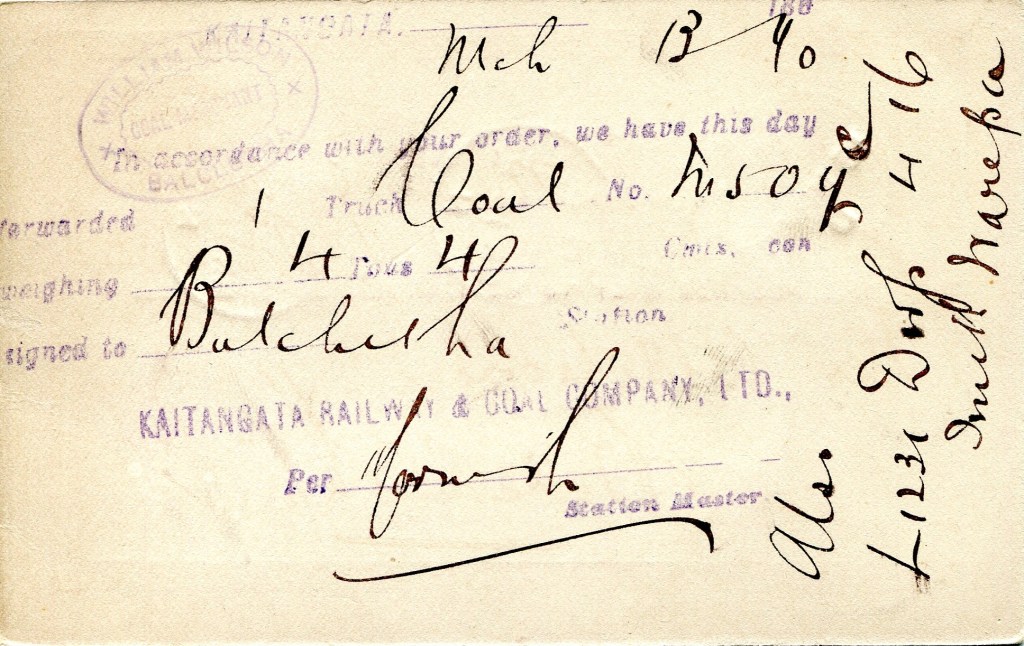 KAITANGATA. 188
Mch 13 90
WILLIAM WILSON
COAL MERCHANT
BALCLUTHA
In accordance with your order, we have this day
forwarded 1 Truck Coal No. M509
weighing 4 Tons 4 Cwts. con
signed to Balclutha Station
KAITANGATA RAILWAY & COAL COMPANY, LTD.,
Per
Station Master
Also
L 1231 4 16
Warepa